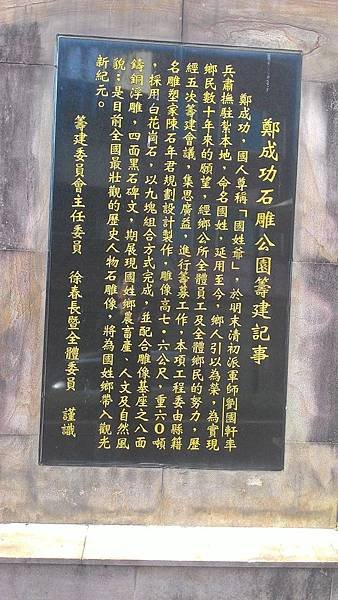 鄭成功石雕公園籌建記事
鄭成功，國人尊稱「國姓爺」，於明末清初派軍師劉國軒率
兵肅撫駐紮本地，命名國姓，延用至今，鄉人引以為榮，為實現
鄉民數十年來的願望，經鄉公所全體員工及全體鄉民的努力，歷
經五次籌建會議，集思廣益，進行籌募工作，本項工程委由縣籍
名雕塑家陳石年君規劃設計製作，雕像高七·六公尺，重六０噸
，採用白花崗石，以九塊組合方式完成，並配合雕像基座之八面
鑄銅浮雕，四面黑石碑文，期展現國姓鄉農畜產、人文及自然風
貌：是目前全國最壯觀的歷史人物石雕像，將為國姓鄉帶入觀光
新紀元。
籌建委員會主任委員　徐春長暨全體委員　謹識